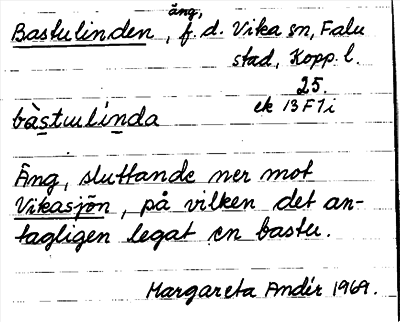 Bastulinden, äng, f.d. Vika sn, Falu
stad, Kopp. l.
25.
ek 13 F 7 i
bàstulínda
Äng, sluttande ner mot
Vikasjön, på vilken det an-
tagligen legat en bastu.
Margareta Andér 1969.